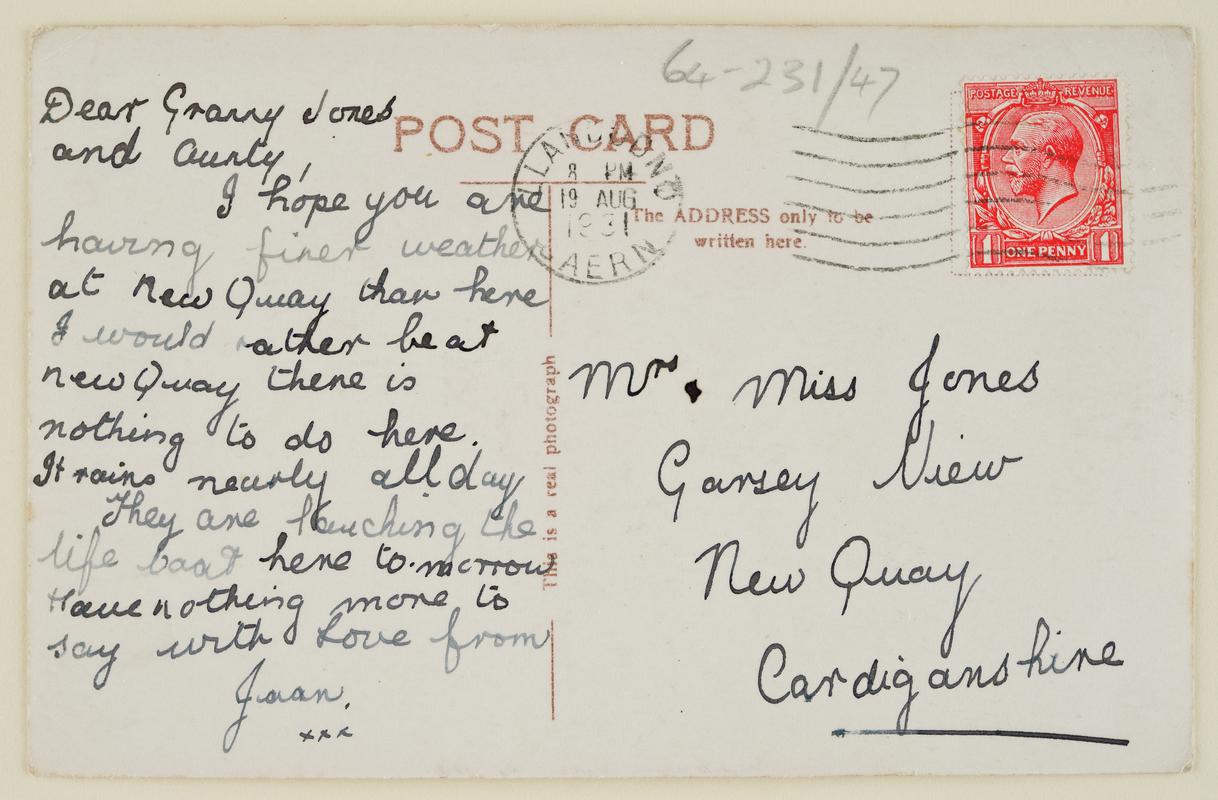 64-231/47
POST CARD
POSTAGE REVENUE
LLANDUDNO
8 PM
19 AUG
1931
CAERN
The ADDRESS only to be
written here.
1 ONE PENNY 1
This is a real photograph
Dear Granny Jones
and Aunty,
I hope you are
having finer weather
at New Quay than here
I would rather be at
new Quay there is
nothing to do here.
It rains nearly all day
They are lauching the
life boat here to.morrow
Have nothing more to
say with Love from
Joan.
xxx
Mrs. Miss Jones
Garsey View
New Quay
Cardiganshire